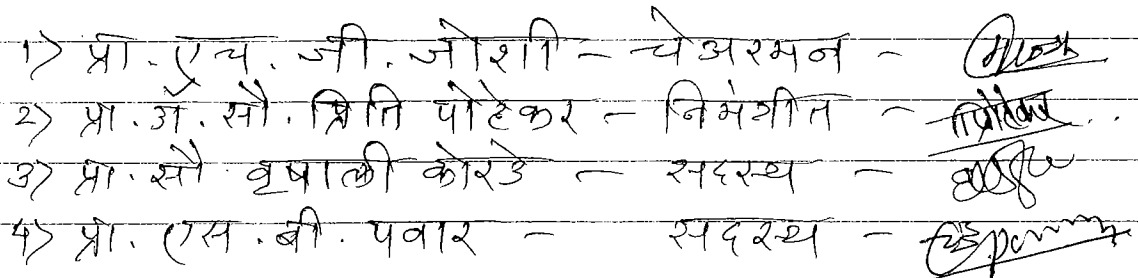 १) प्रा. एच. जी. जोशी - चेअरमन -
२) प्रा. अॅ. सौ. प्रिति पोहेकर - निमंत्रीत -
३) प्रा. सौ वृषाली कोरडे - सदस्य -
४) प्रा. एस. बी. पवार - सदस्य -